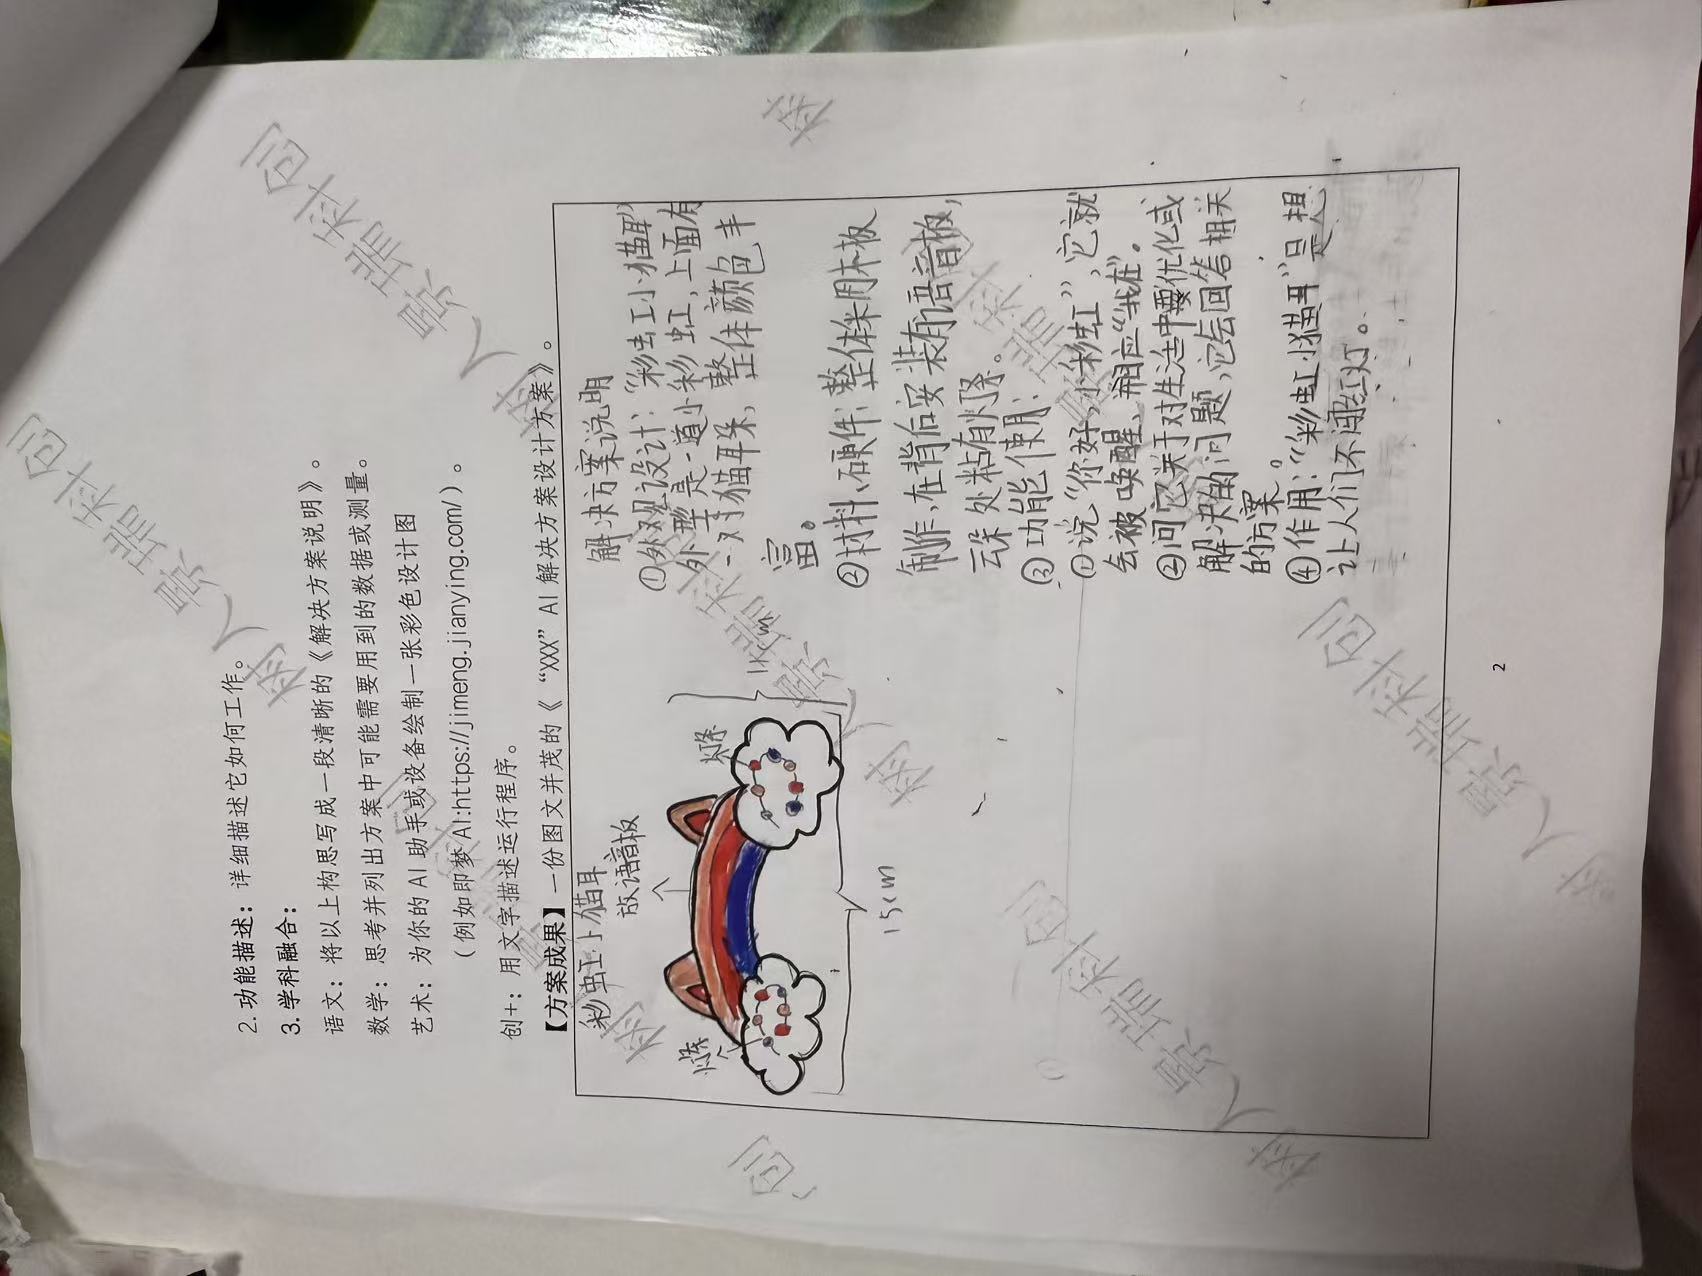 2.功能描述：详细描述它如何工作。
3.学科融合：
语文：将以上构思写成一段清晰的《解决方案说明》。
数学：思考并列出方案中可能需要用到的数据或测量。
艺术：为你的AI助手或设备绘制一张彩色设计图
（例如即梦AI:https://jimeng.jianying.com/）。
创+：用文字描述运行程序。
【方案成果】一份图文并茂的《“XXX”AI解决方案设计方案》。
彩虹小猫耳
放语音板
灯条
灯条
15cm
解决方案说明
①外观设计：“彩虹小猫耳”
外形是一道小彩虹，上面有
一对猫耳朵，整体颜色丰
富。
②材料、硬件：整体采用木板
制作，在背后安装有语音板，
云朵处粘有灯条。
③功能使用：
①说“你好，小彩虹”，它就
会被唤醒，并应“我在”。
②问它关于对生活中要优化或
解决的问题，它会回答相关
的方案。
④作用：“彩虹小猫耳”只是想
让人们不闯红灯。
2
树人景瑞科创